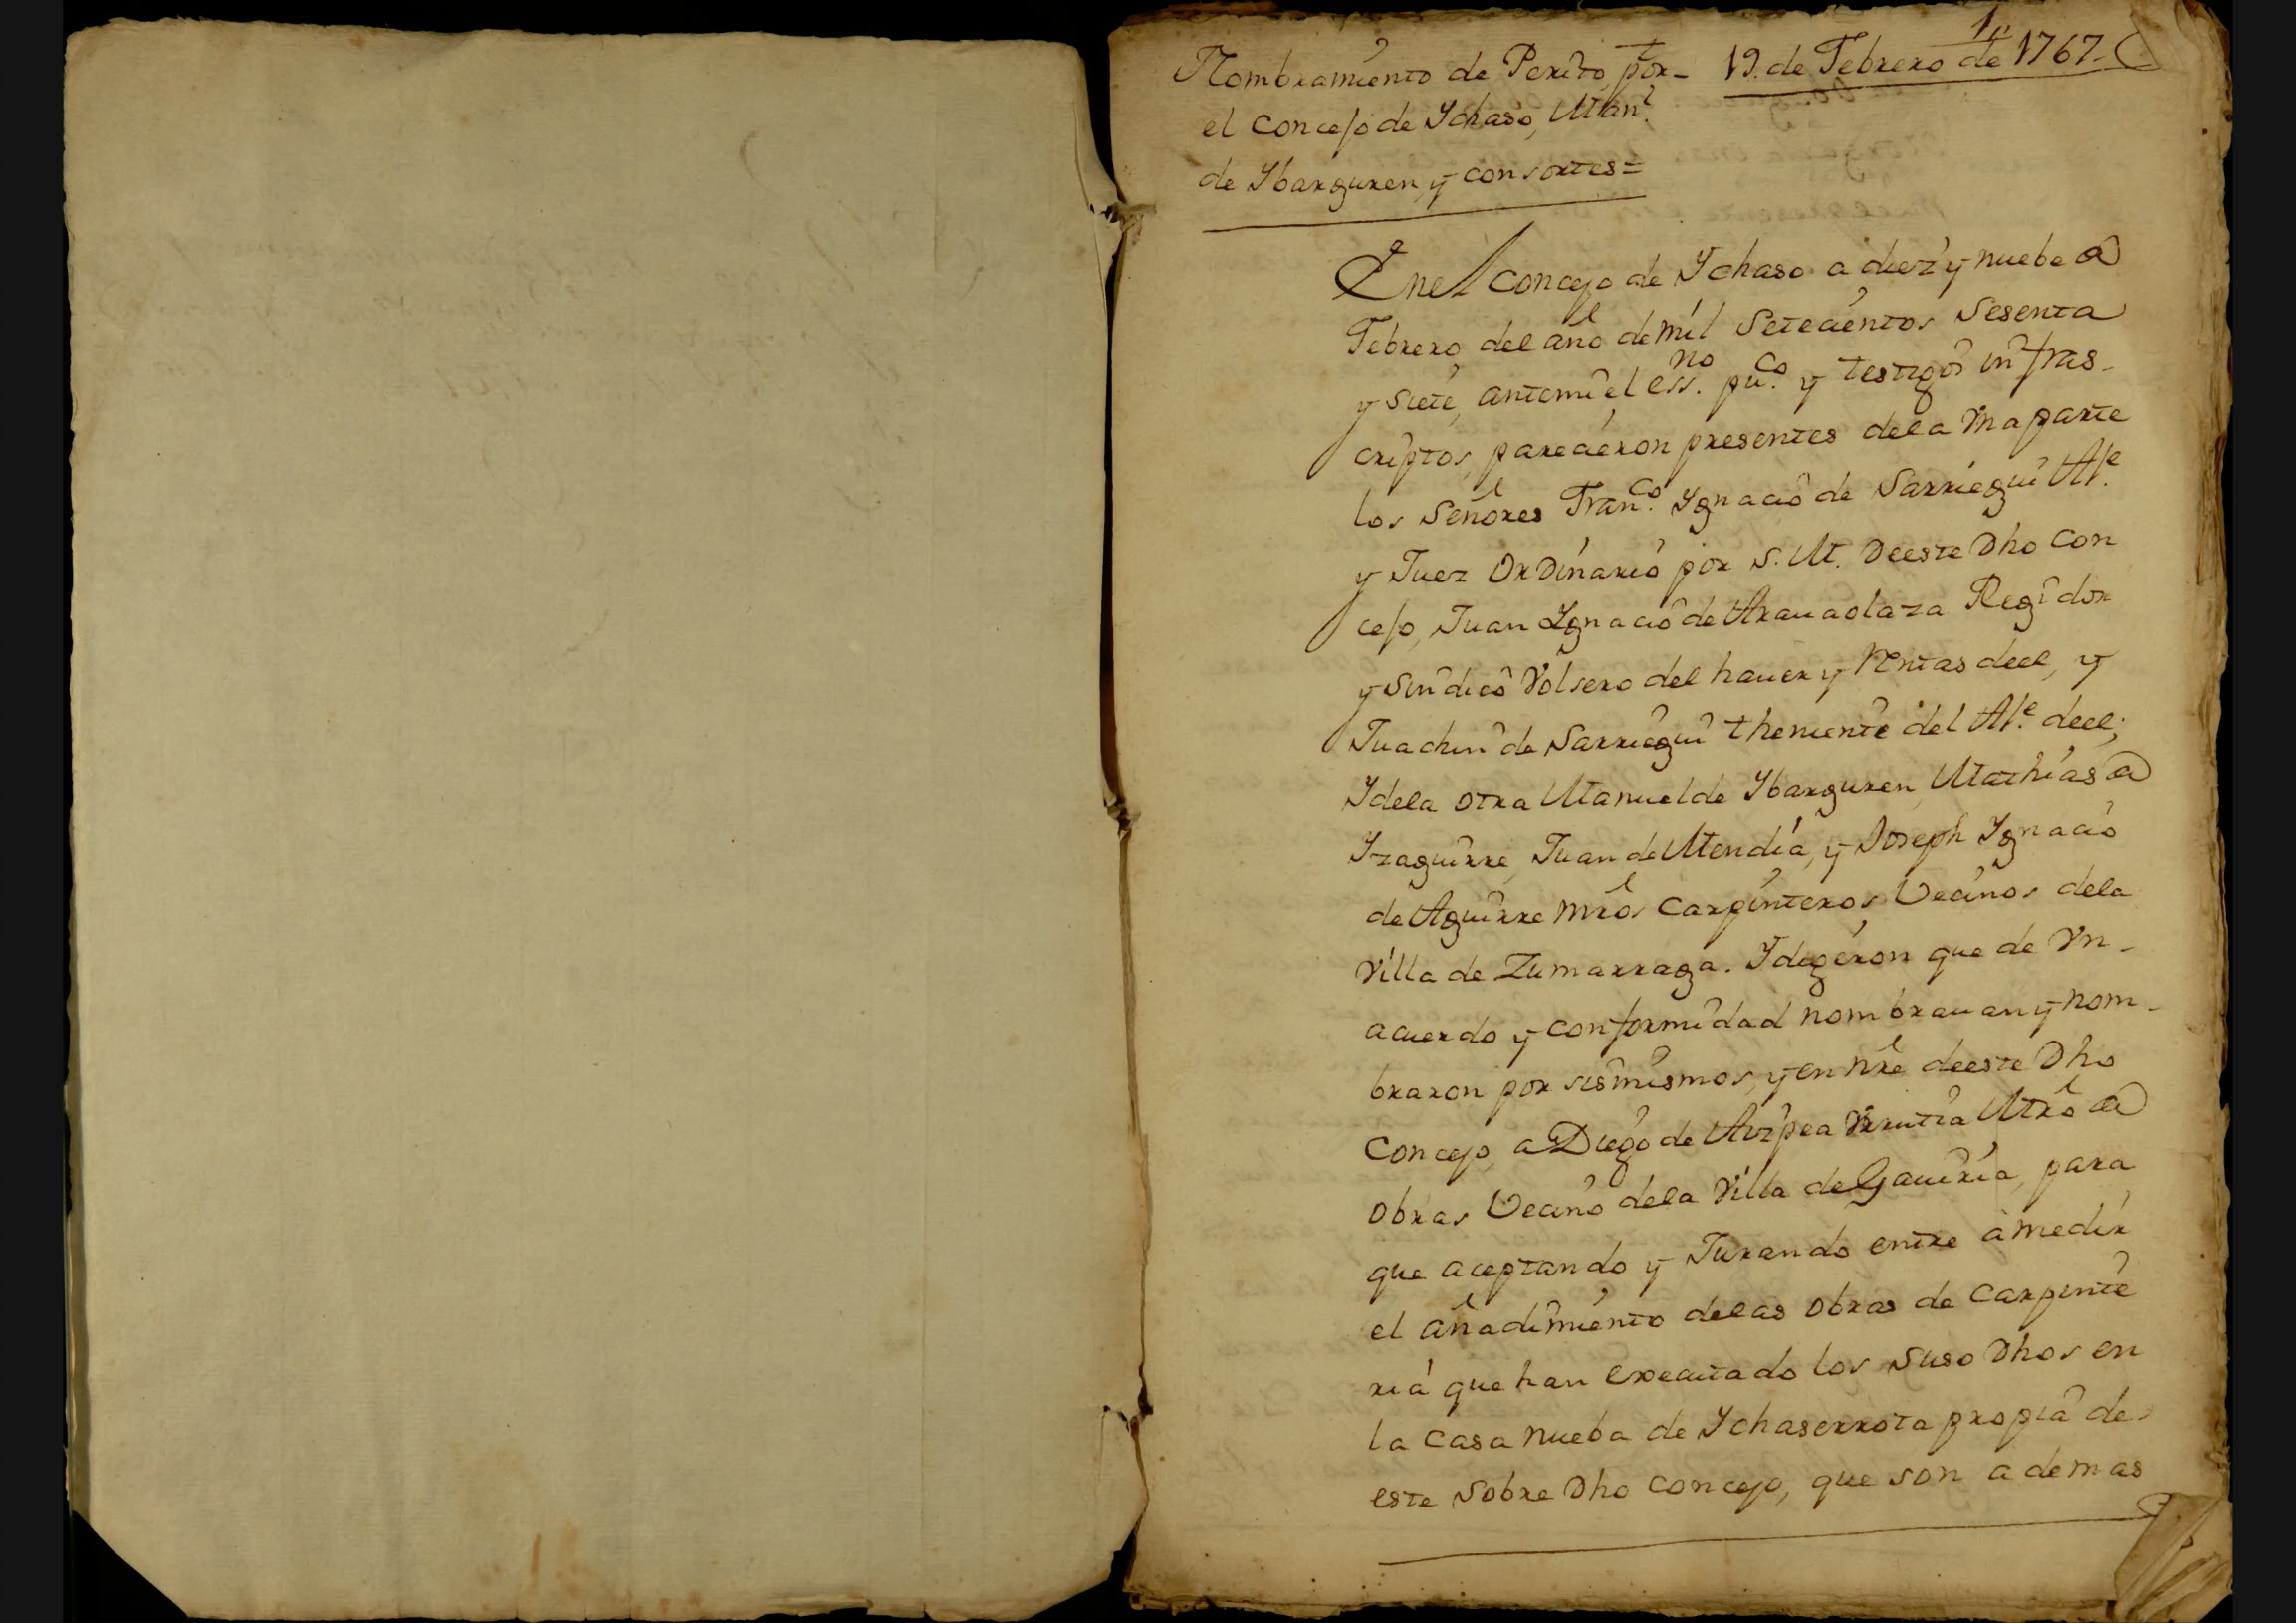 1,,
Nombramiento de Perito, por-
el concejo de Ychaso, Man.l
de Ybarguren, y consortes=
19. de Febrero de 1767.
En el concejo de Ychaso a diez y nuebe de
Febrero, del año de mil setecientos sesenta
y siete, ante mi el ess.no pu.co y testigos infras-
criptos, parecieron presentes de la vna parte
los Señores Fran.co Ygnacio de Sarriegui Al.e
y Juez Ordinario por S. M. de este dho con
cejo, Juan Ygnacio de Arauaolaza Regidor
y Sindico Volsero del hauer y Rentas de el, y
Juachin de Sarriegui theniente del Al.e de el;
Y de la otra Manuel de Ybarguren, Mathias de
Yzaguirre, Juan de Mendia, y Joseph Ygnacio
de Aguirre mros carpinteros Vecinos de la
Villa de Zumarraga. Y digeron que de vn-
acuerdo y conformidad nombrauan y nom-
braron por sis mismos, y en nre de este dho
concejo, a Diego de Aizpea Vrrutia Mro de
obras Vecino de la Villa de Gauiria, para
que aceptando y Jurando entre à medir
el añadimiento de las obras de carpinte
ria que han executado los suso dhos en
la casa nueba de Ychaserrota propia de
este sobre dho concejo, que son a demas